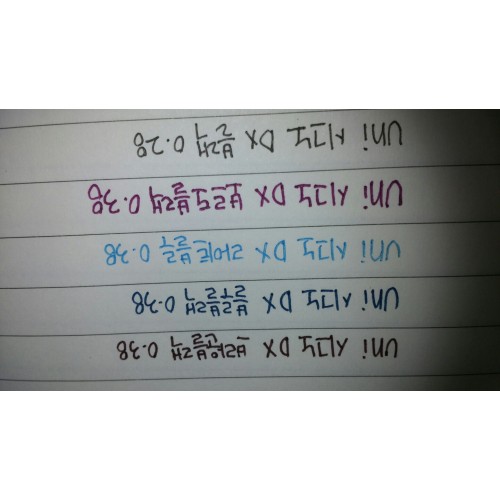 Uni 시그노 DX 브라운블랙 0.38
Uni 시그노 DX 블루블랙 0.38
Uni 시그노 DX 라이트블루 0.38
Uni 시그노 DX 0.38
Uni 시그노 DX 블랙 0.28